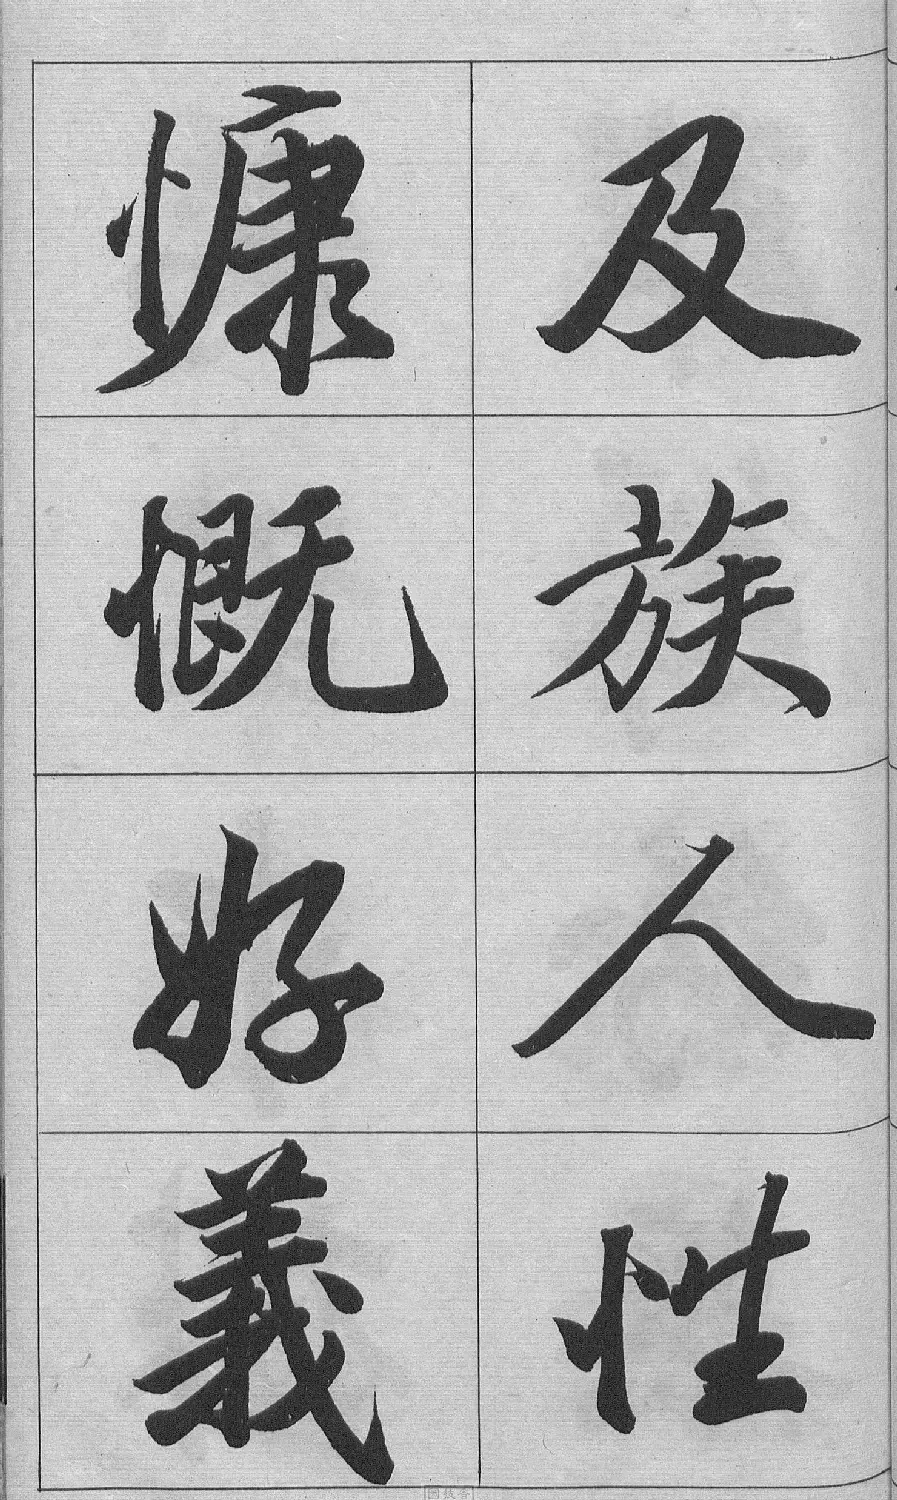 及族人性
慷慨好義